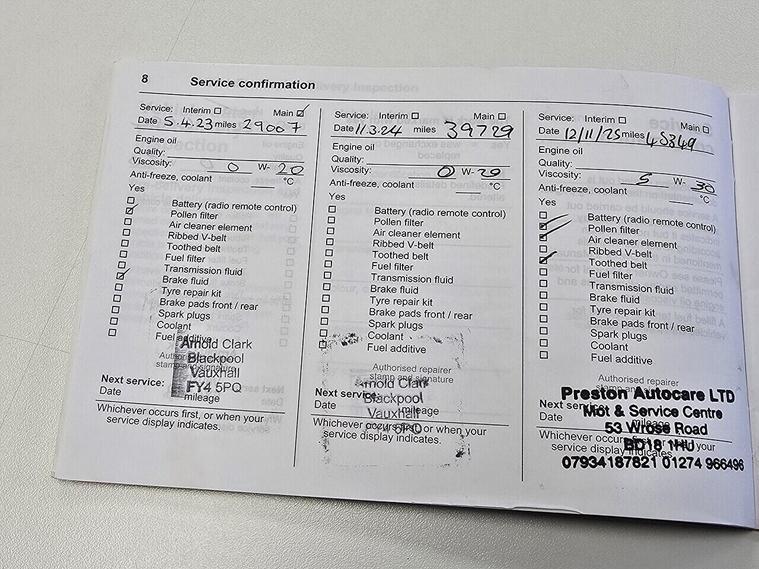 8 Service confirmation
Service: Interim ☐ Main ☑
Date 5.4.23 miles 29007
Engine oil
Quality:
Viscosity: 0 W- 20
Anti-freeze, coolant °C
Yes
☐ Battery (radio remote control)
☑ Pollen filter
☐ Air cleaner element
☐ Ribbed V-belt
☐ Toothed belt
☐ Fuel filter
☐ Transmission fluid
☑ Brake fluid
☐ Tyre repair kit
☐ Brake pads front / rear
☐ Spark plugs
☐ Coolant
☐ Fuel additive
Arnold Clark
Blackpool
Vauxhall
FY4 5PQ
Authorised repairer
stamp and signature
Next service:
Date mileage
Whichever occurs first, or when your
service display indicates.
Service: Interim ☐ Main ☐
Date 11.3.24 miles 39729
Engine oil
Quality:
Viscosity: 0 W- 20
Anti-freeze, coolant °C
Yes
☐ Battery (radio remote control)
☐ Pollen filter
☐ Air cleaner element
☐ Ribbed V-belt
☐ Toothed belt
☐ Fuel filter
☐ Transmission fluid
☐ Brake fluid
☐ Tyre repair kit
☐ Brake pads front / rear
☐ Spark plugs
☐ Coolant
☐ Fuel additive
Authorised repairer
stamp and signature
Arnold Clark
Blackpool
Vauxhall
FY4 5PQ
Next service:
Date mileage
Whichever occurs first, or when your
service display indicates.
Service: Interim ☐ Main ☐
Date 12/11/25 miles 48349
Engine oil
Quality:
Viscosity: 5 W- 30
Anti-freeze, coolant °C
Yes
☐ Battery (radio remote control)
☑ Pollen filter
☑ Air cleaner element
☐ Ribbed V-belt
☑ Toothed belt
☐ Fuel filter
☐ Transmission fluid
☐ Brake fluid
☐ Tyre repair kit
☐ Brake pads front / rear
☐ Spark plugs
☐ Coolant
☐ Fuel additive
Authorised repairer
stamp and signature
Preston Autocare LTD
Mot & Service Centre
53 Wrose Road
BD18 1HU
07934187821 01274 966496
Next service:
Date mileage
Whichever occurs first, or when your
service display indicates.